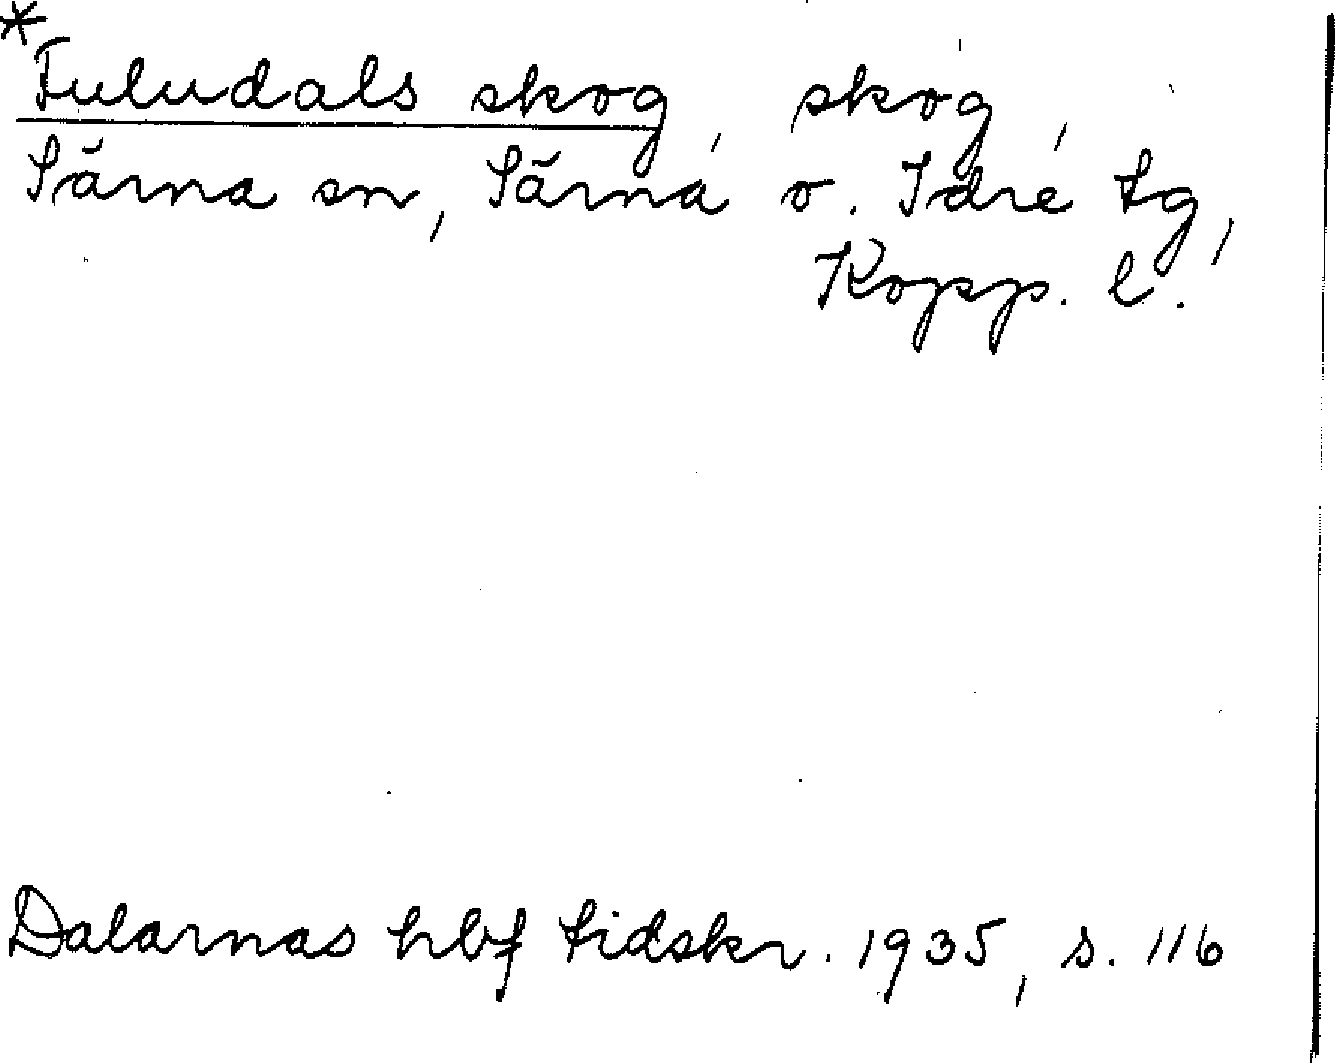 *Fuludals skog, skog,
Särna sn, Särna o. Idre tg,
Kopp. l.
Dalarnas hbf tidskr. 1935, s. 116